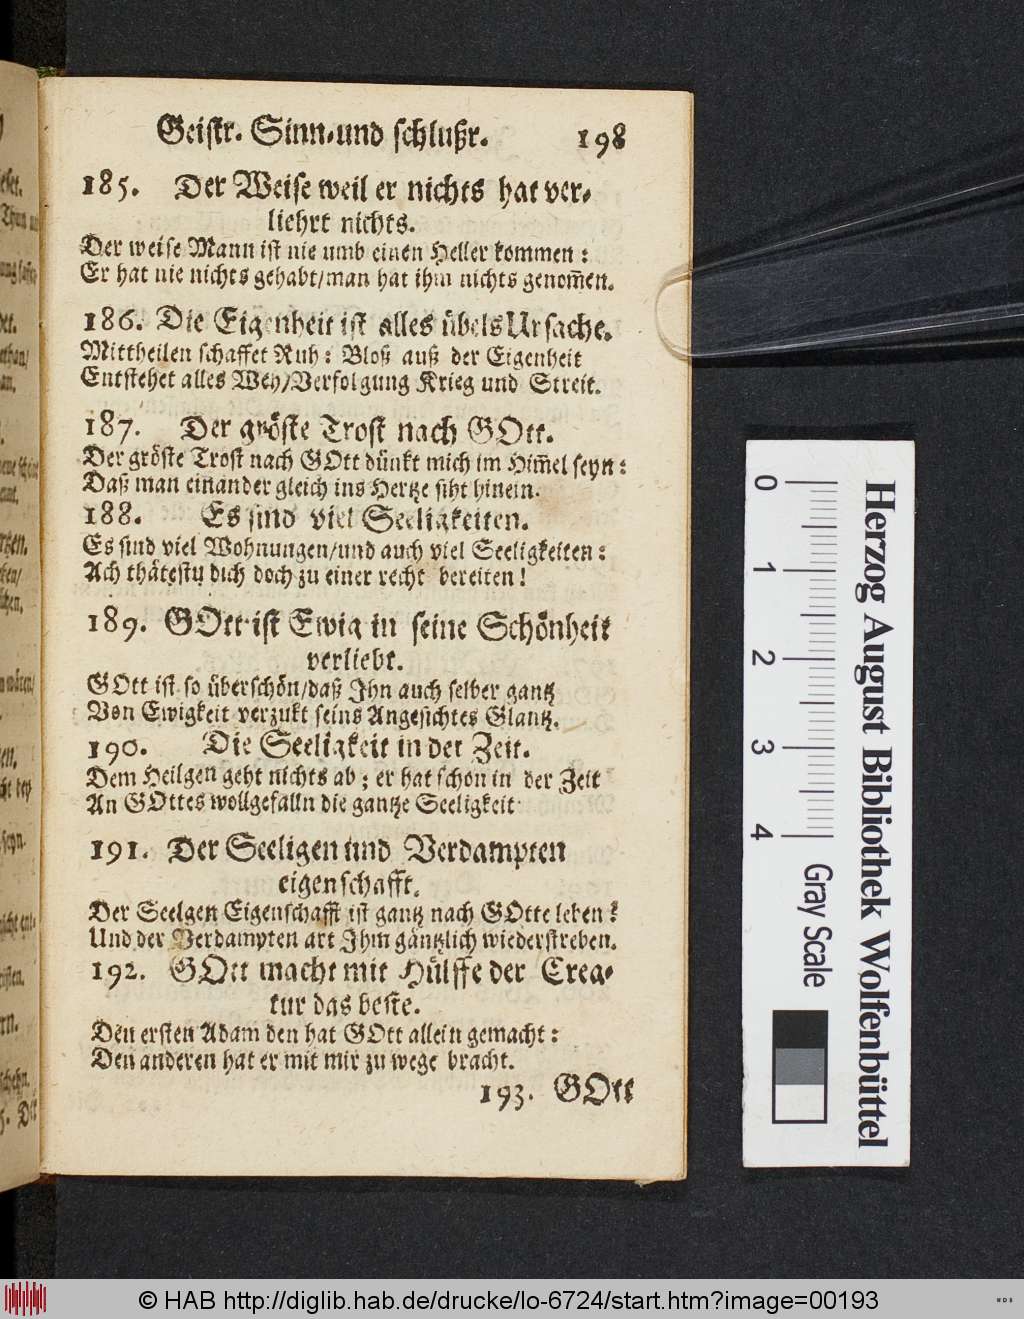 Geistr. Sinn-und schlußr. 198
185. Der Weise weil er nichts hat ver-
liehrt nichts.
Der weise Mann ist nie umb einen Heller kommen:
Er hat nie nichts gehabt/man hat ihm nichts genom̅en.
186. Die Eigenheit ist alles übels Ursache.
Mittheilen schaffet Ruh: Bloß auß der Eigenheit
Entstehet alles Weh/Verfolgung Krieg und Streit.
187. Der gröste Trost nach GOtt.
Der gröste Trost nach GOtt dünkt mich im Him̅el seyn:
Daß man einander gleich ins Hertze siht hinein.
188. Es sind viel Seeligkeiten.
Es sind viel Wohnungen/und auch viel Seeligkeiten:
Ach thätestu dich doch zu einer recht bereiten!
189. GOtt ist Ewig in seine Schönheit
verliebt.
GOtt ist so überschön/daß Ihn auch selber gantz
Von Ewigkeit verzukt seins Angesichtes Glantz.
190. Die Seeligkeit in der Zeit.
Dem Heilgen geht nichts ab; er hat schon in der Zeit
An GOttes wollgefalln die gantze Seeligkeit
191. Der Seeligen und Verdampten
eigenschafft.
Der Seelgen Eigenschafft ist gantz nach GOtte leben:
Und der Verdampten art Ihm gäntzlich wiederstreben.
192. GOtt macht mit Hülffe der Crea-
tur das beste.
Den ersten Adam den hat GOtt allein gemacht:
Den anderen hat er mit mir zu wege bracht.
193. GOtt
0 1 2 3 4
Gray Scale
Herzog August Bibliothek Wolfenbüttel
© HAB http://diglib.hab.de/drucke/lo-6724/start.htm?image=00193